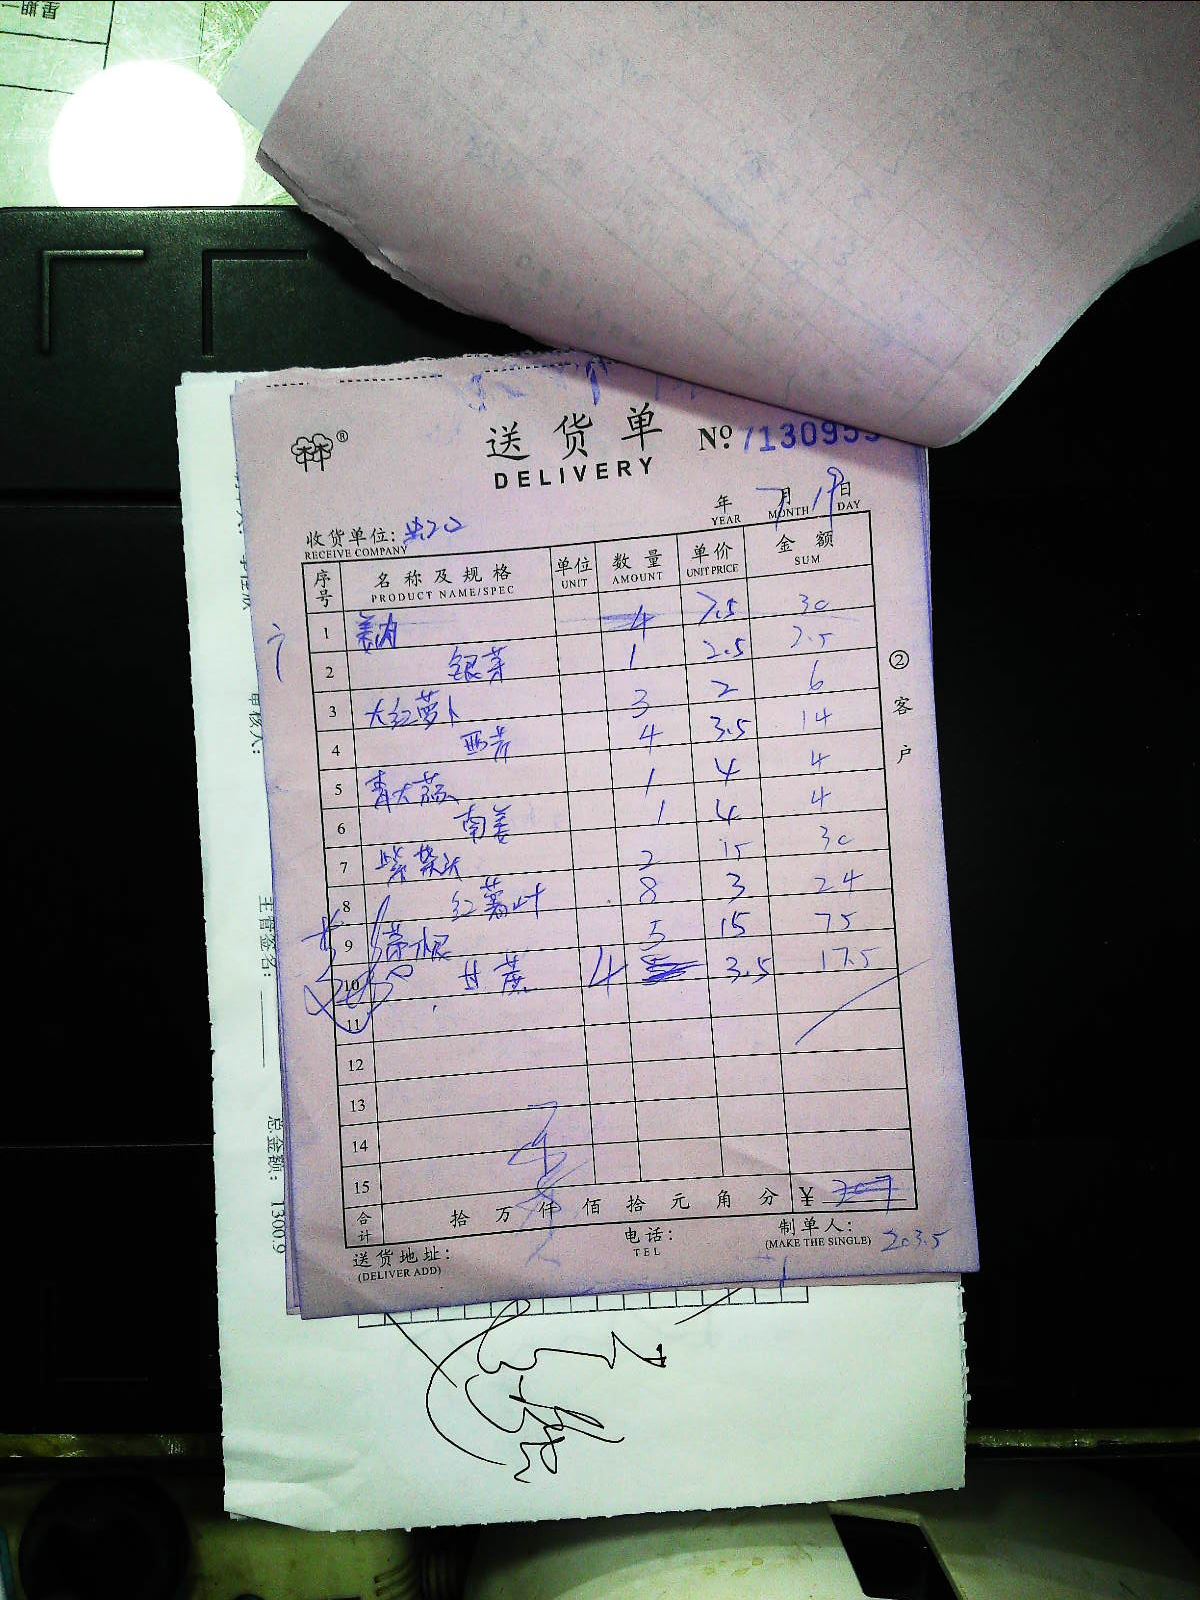 送货单 № 7130955
DELIVERY
年 7月 19日
YEAR MONTH DAY
收货单位: 出口
RECEIVE COMPANY
序号 名称及规格 单位 数量 单价 金额
PRODUCT NAME/SPEC UNIT AMOUNT UNIT PRICE SUM
1 姜肉 4 7.5 30
2 银芽 1 2.5 2.5
3 大红萝卜 3 2 6
4 西芹 4 3.5 14
5 青大荔 1 4 4
6 南姜 1 4 4
7 紫菜头 2 15 30
8 红薯叶 8 3 24
9 茅根 5 15 75
10 甘蔗 4 3.5 17.5
11
12
13
14
15
合计 拾万仟佰拾元角分 ¥ 207
203.5
送货地址: 电话: 制单人:
(DELIVER ADD) TEL (MAKE THE SINGLE)
②客户
审核人:
主管签名:
总金额: 1300.9
星期一